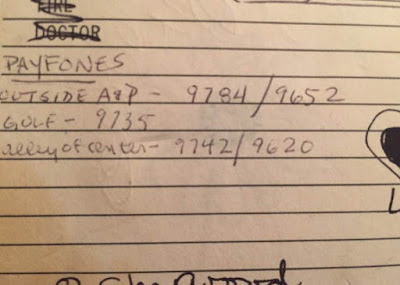 FIRE
DOCTOR
PAYFONES
OUTSIDE A&P - 9784/9652
GULF - 9735
center - 9742/9620